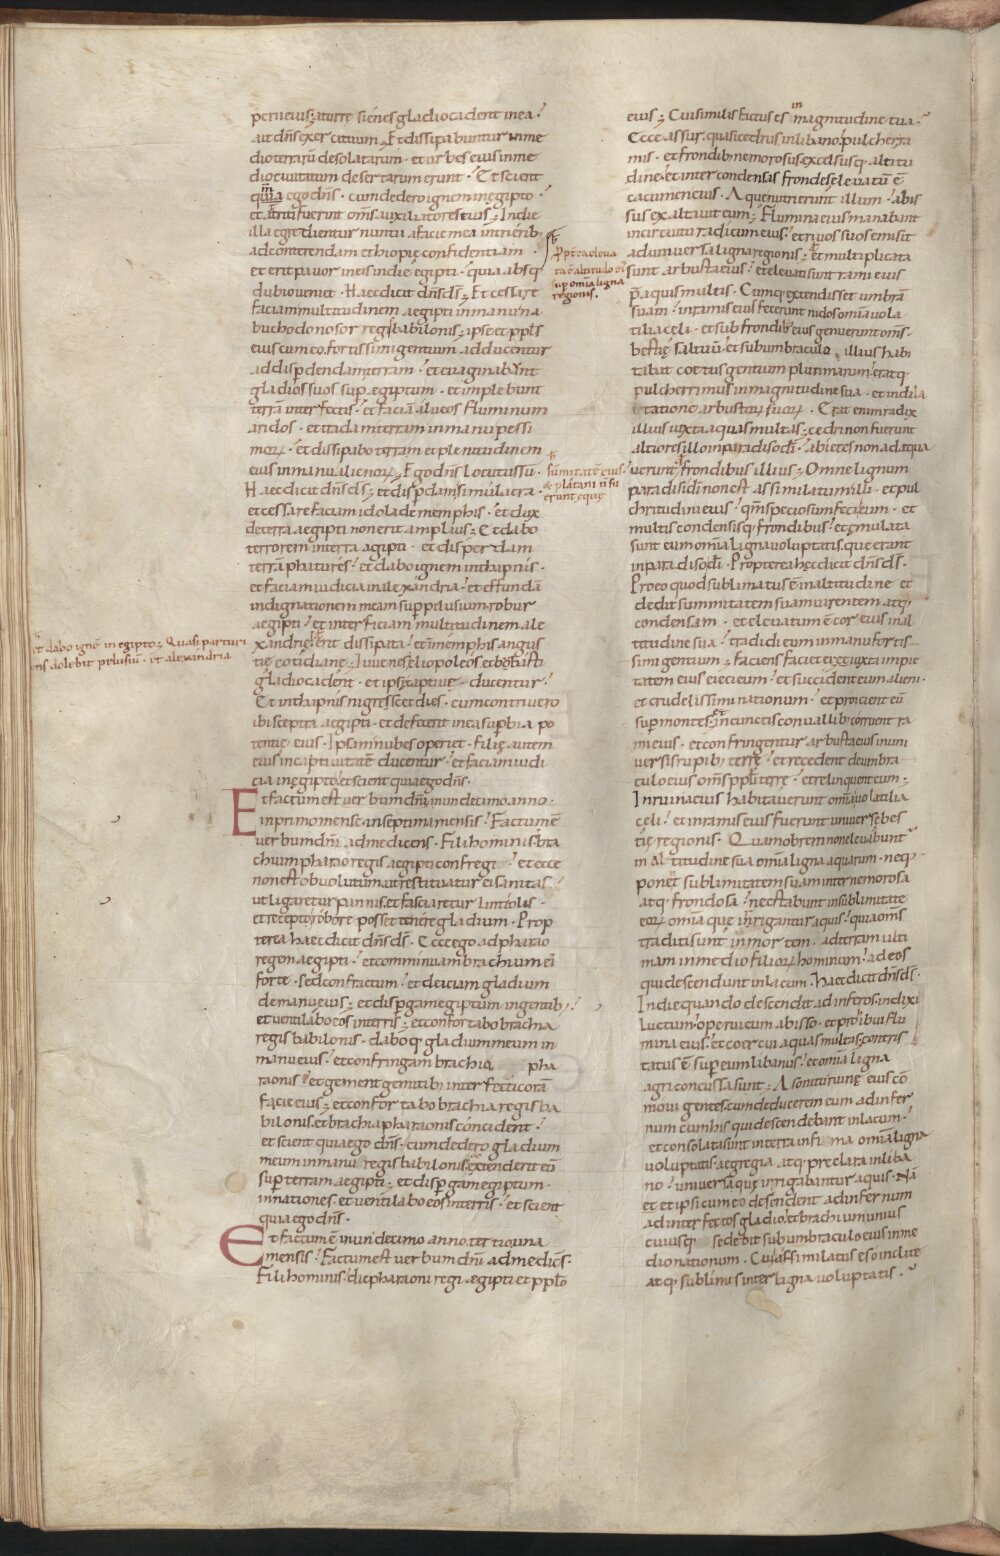 perii eius; a turre sienes gladio cadent in ea.
ait dñs exercituum; Et dissipabuntur in me
dio terrarũ desolatarum · et urbes eius in me
dio ciuitatum desertarum erunt · Et scient
quia ego dñs · cum dedero ignem in egipto ·
et attriti fuerint oms auxiliatores eius; In die
illa egredientur nuntii a facie mea in trierib;
ad conterendam ethiopię confidentiam
et erit pauor in eis in die egipti · quia absq
dubio ueniet · Haec dicit dñs ds; Et cessare
faciam multitudinem aegipti in manu na
buchodonosor regis babilonis; ipse et ppls
eius cum eo fortissimi gentium adducentur
ad disperdendam terram · et euaginabunt
gladios suos sup egiptum · et implebunt
terra interfectis · et faciã alueos fluminum
aridos · et tradam terram in manu pessi
morꝝ · et dissipabo terram et plenitudinem
eius in manu alienorꝝ; Ego dñs locutus sũ ·
Haec dicit dñs ds; et disperdam simulacra ·
et cessare faciam idola de memphis · et dux
de terra aegipti non erit amplius; Et dabo
terrorem in terra agipti · et disperdam
terra phatures · et dabo ignem in thapnis ·
et faciam iudicia in alexandria · et effundã
indignationem meam sup pilusium robur
aegipti · et interficiam multitudinem ale
xandrię erit dissipata · et in memphis angus
tię cotidianę; Iuuenes eliopoleos et bubasti
gladio cadent · et ipsę captiuę ducentur ·
Et in thapnis nigrescet dies · cum contriuero
ibi sceptra aegipti · et defecerit in ea supbia po
tentię eius · Ipsam nubes operiet · Filię autem
eius in captiuitatẽ ducentur · et faciam iudi
cia in egipto · et scient quia ego dñs ·
Et factum est uerbum dñi in undecimo anno ·
in primo mense in septima mensis · Factum ẽ
uerbum dñi ad me dicens · Fili hominis · bra
chium pharao regis aegipti confregi · et ecce
non est obuolutum ut restitueretur ei sanitas
ut ligaretur pannis et fasciaretur lintiolis ·
et recepto robore posset tenere gladium · Prop
terea haec dicit dñs ds · Ecce ego ad pharao
regem aegipti · et comminuam brachium ei
forte · sed confractum · et deiciam gladium
de manu eius; et dispgam egiptum in gentib;
et uentilabo eos in terris; et confortabo brachia
regis babilonis · daboq gladium meum in
manu eius · et confringam brachia pha
raonis · et gement gemitib; interfecti corã
facie eius; et confortabo brachia regis ba
bilonis · et brachia pharaonis concident ·
et scient quia ego dñs · cum dedero gladium
meum in manu regis babilonis · et extenderit eũ
sup terram aegipti · et dispgam egiptum ·
in nationes · et uentilabo eos in terris · et scient
quia ego dñs ·
Et factum ẽ in undecimo anno · tertio una
mensis · Factum est uerbum dñi ad me dicẽs ·
Fili hominis · dic pharaoni regi aegipti et pplo
et dabo ignẽ in egipto; Quasi parturi
ens dolebit pelusiũ · et alexandria
Propterea eleua
ta ẽ altitudo ei
sup omia ligna
regionis.
summitatẽ eius ·
& platani n fu
erunt equę
eius; Cui similis factus es in magnitudine tua ·
Ecce assur quasi cedrus in libano · pulcher ra
mis · et frondib nemorosus · excelsusq altitu
dine · et inter condensas frondes eleuatũ ẽ
cacumen eius · Aque nutrierunt illum · abis
sus exaltauit eum; Flumina eius manabant
in circuitu radicum eius · et riuos suos emisit
ad uniuersa ligna regionis; et multiplicata
sunt arbusta eius · et eleuati sunt rami eius
p aquis multis · Cumq extendisset umbrã
suam · in ramis eius fecerunt nidos omia uola
tilia celi · et sub frondib eius genuerunt oms
bestię saltuũ · et sub umbraculo illius habi
tabat coetus gentium plurimarum · eratq
pulcherrimus in magnitudine sua · et in dila
tatione arbustorꝝ suorꝝ · Erat enim radix
illius iuxta aquas multas; cedri non fuerunt
altiores illo in paradiso di · abietes non adaequa
uerunt frondibus illius; Omne lignum
paradisi di non est assimilatum illi · et pul
chritudini eius · qm speciosum feci eum · et
multis condensisq frondibus · et ęmulata
sunt eum omia ligna uoluptatis · que erant
in paradiso di · Propterea hęc dicit dñs ds ·
Pro eo quod sublimatus ẽ in altitudine et
dedit summitatem suam uirentem atq
condensam · et eleuatum ẽ cor eius in al
titudine sua · tradidi eum in manu fortis
simi gentium; Faciens faciet ei · iuxta impie
tatem eius eieci eum · et succident eum alieni ·
et crudelissimi nationum · et proicient eũ
sup montes · et in cunctis conuallib corruent ra
mi eius · et confringentur arbusta eius in uni
uersis rupib terrę · et recedent de umbra
culo eius oms ppli terrę · et relinquent eum;
In ruina eius habitauerunt omia uolatilia
celi · et in ramis eius fuerunt uniuersę bes
tię regionis · Quamobrem non eleuabunt
in altitudine sua omia ligna aquarum · neq
ponent sublimitatem suam inter nemorosa
atq frondosa · nec stabunt in sublimitate
eorꝝ omia quę inrigantur aquis · quia oms
traditi sunt in mortem · ad terram ulti
mam in medio filiorꝝ hominum · ad eos
qui descendunt in lacum · Haec dicit dñs ds ·
In die quando descendit ad inferos · induxi
luctum · operui eum abisso · et prohibui flu
mina eius · et coercui aquas multas · contris
tatus ẽ super eum libanus · et omia ligna
agri concussa sunt; A sonitu ruinę eius cõ
moui gentes · cum deducerem eum ad infer
num cum his qui descendebant in lacum ·
et consolata sunt in terra infima omia ligna
uoluptatis aegregia · atq preclara in liba
no · uniuersa quę inrigabantur aquis · Nã
et et ipsi cum eo descendent ad infernum
ad interfectos gladio · et brachium unius
cuiusq sedebit sub umbraculo eius in me
dio nationum · Cui assimilatus es o inclite
atq sublimis inter ligna uoluptatis ·